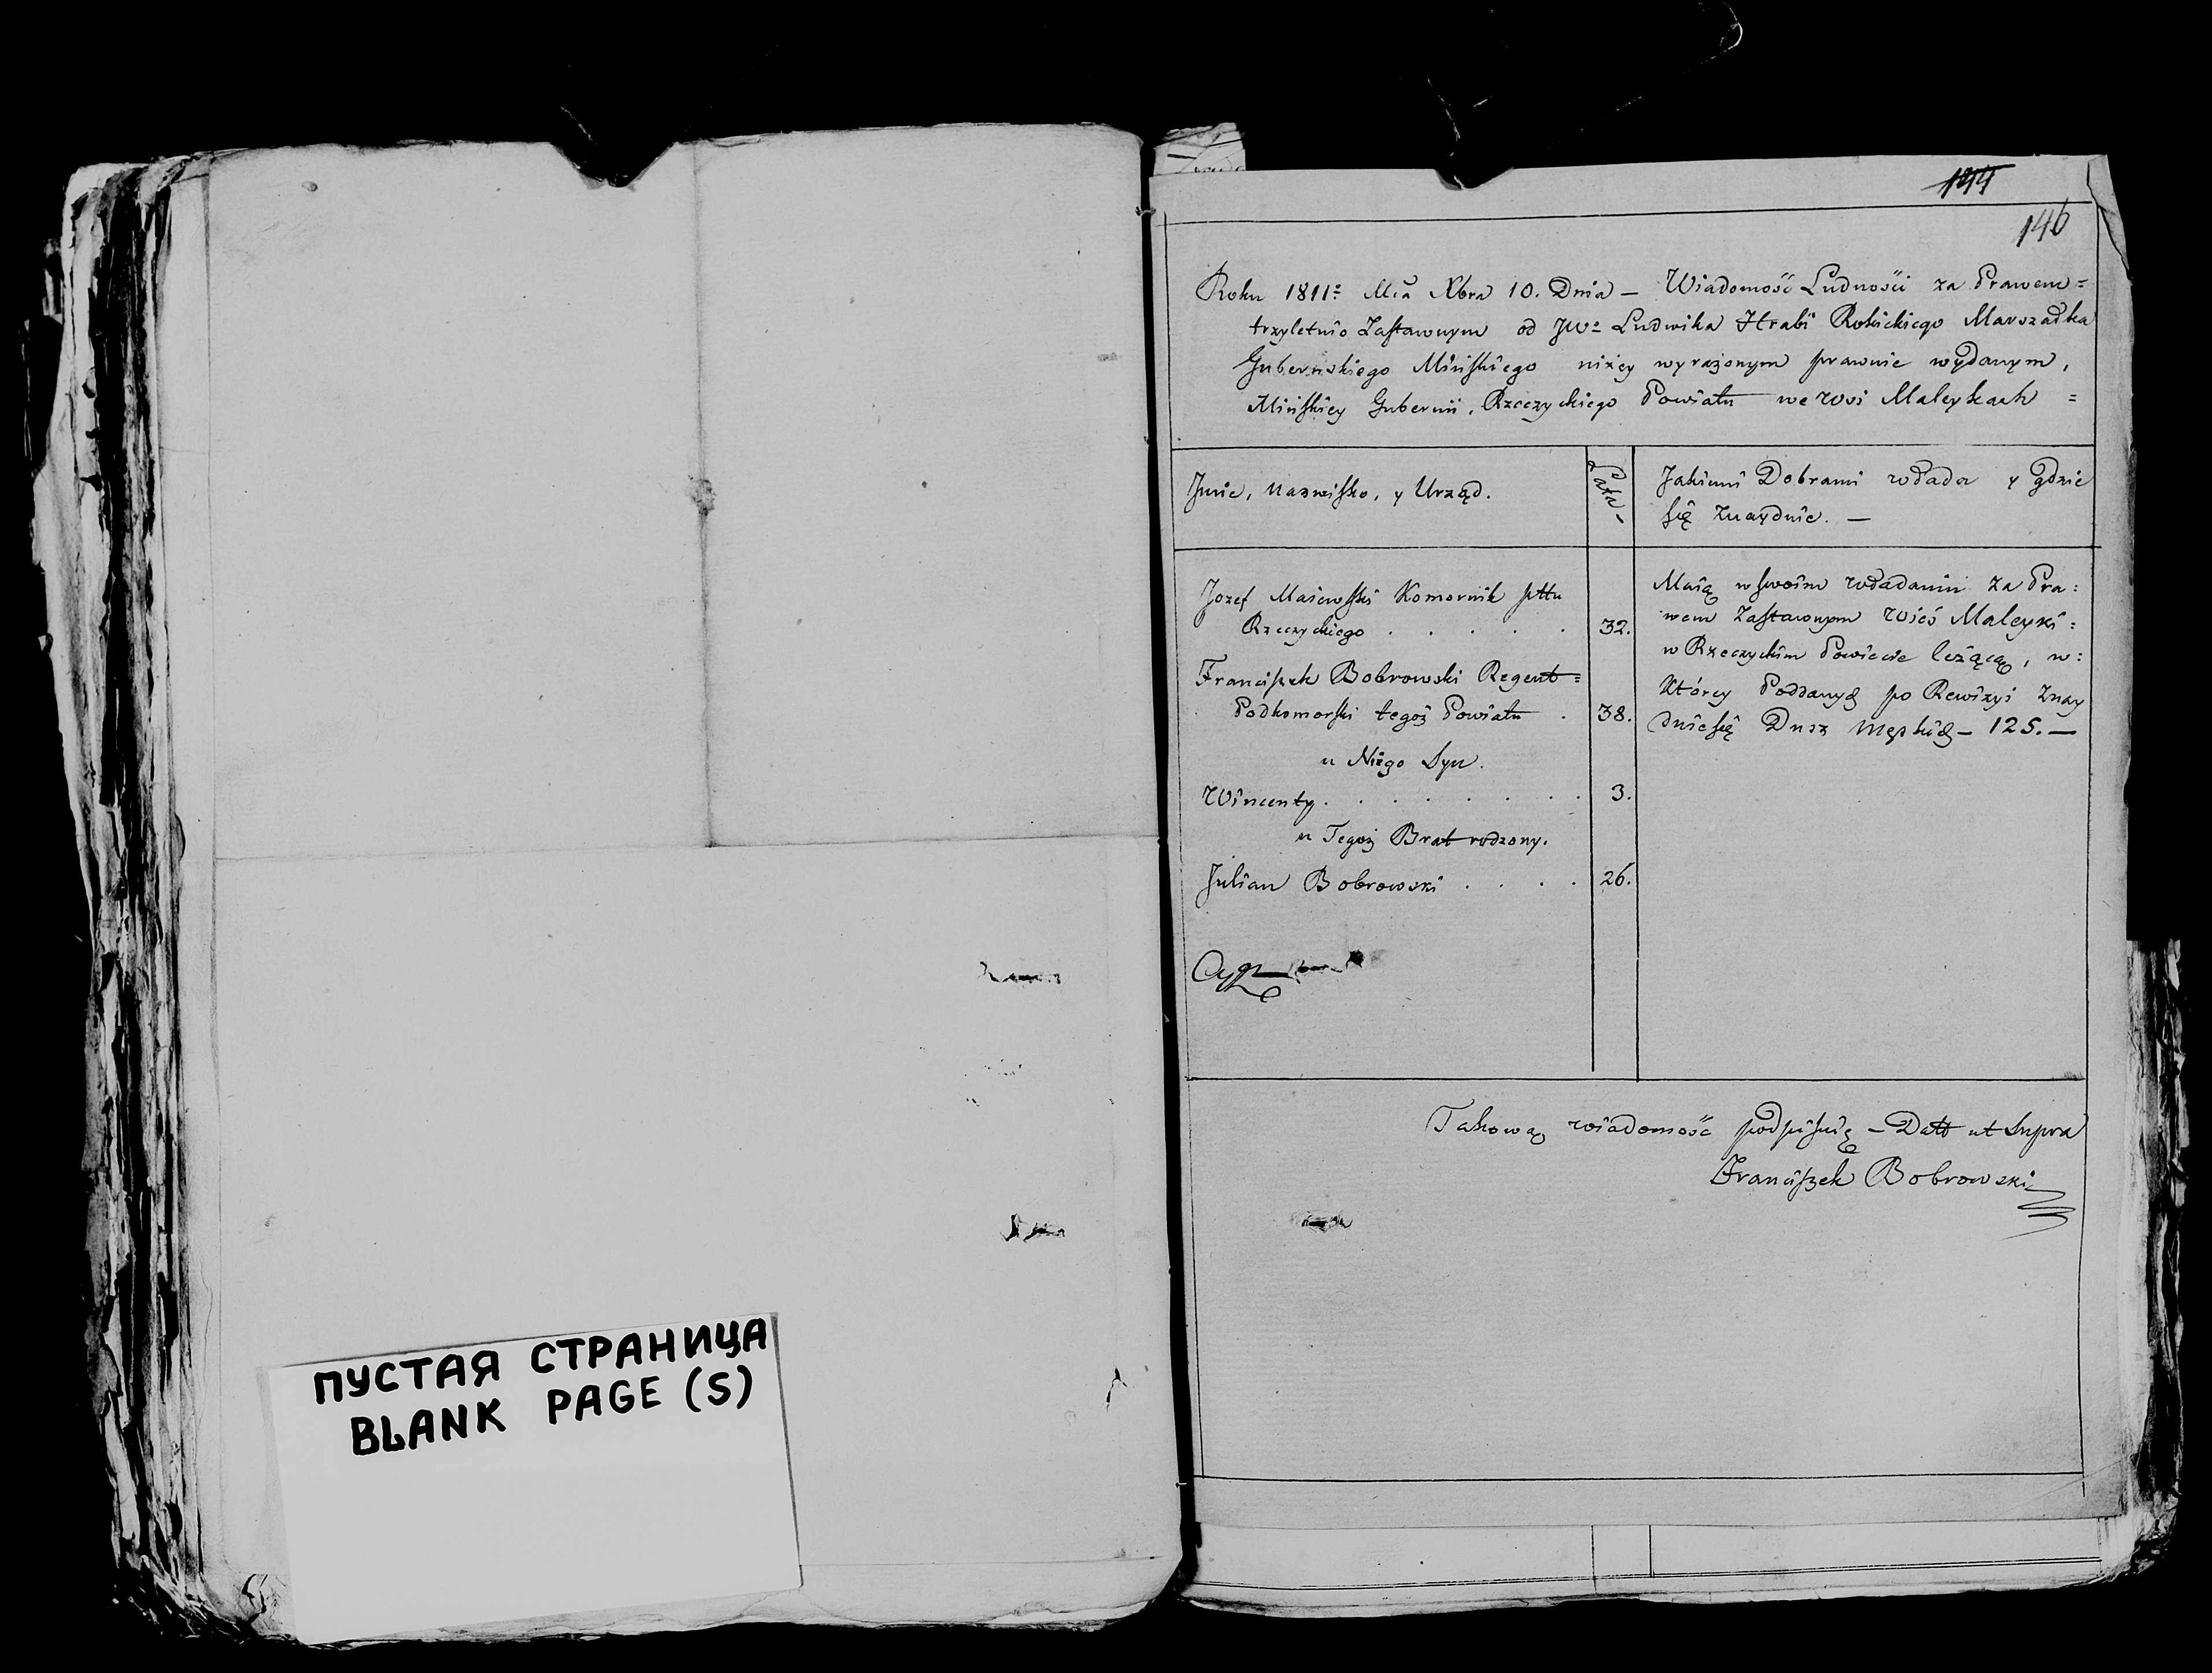 144
146
Roku 1811º Mca Xbra 10. Dnia — Wiadomość Ludności za Prawem =
trzyletnio Zastawnym od JWº Ludwika Hrabi Rokickiego Marszałka
Guberńskiego Mińskiego niżey wyrażonym prawnie wydanym,
Mińskiey Gubernii, Rzeczyckiego Powiatu we Wsi Maleykach =
Jmie, Nazwisko, y Urząd.
Lata -
Jakiemi Dobrami włada y gdzie
się znayduie. —
Jozef Maiewski Komornik pttu
Rzeczyckiego . . . . . 32.
Franciszek Bobrowski Regent =
Podkomorski tegoż Powiatu . 38.
u Niego Syn.
Wincenty . . . . . . . . 3.
u Tegoż Brat rodzony.
Julian Bobrowski . . . . 26.
Maią w swoim władaniu za Pra :
wem Zastawnym Wieś Maleyki :
w Rzeczyckim Powiecie leżącą, w :
Którey Poddanych po Rewizyi Znay
duie się Dusz Męskich — 125. —
Takową wiadomość podpisuię — Datt ut Supra
Franciszek Bobrowski
ПУСТАЯ СТРАНИЦА
BLANK PAGE (S)